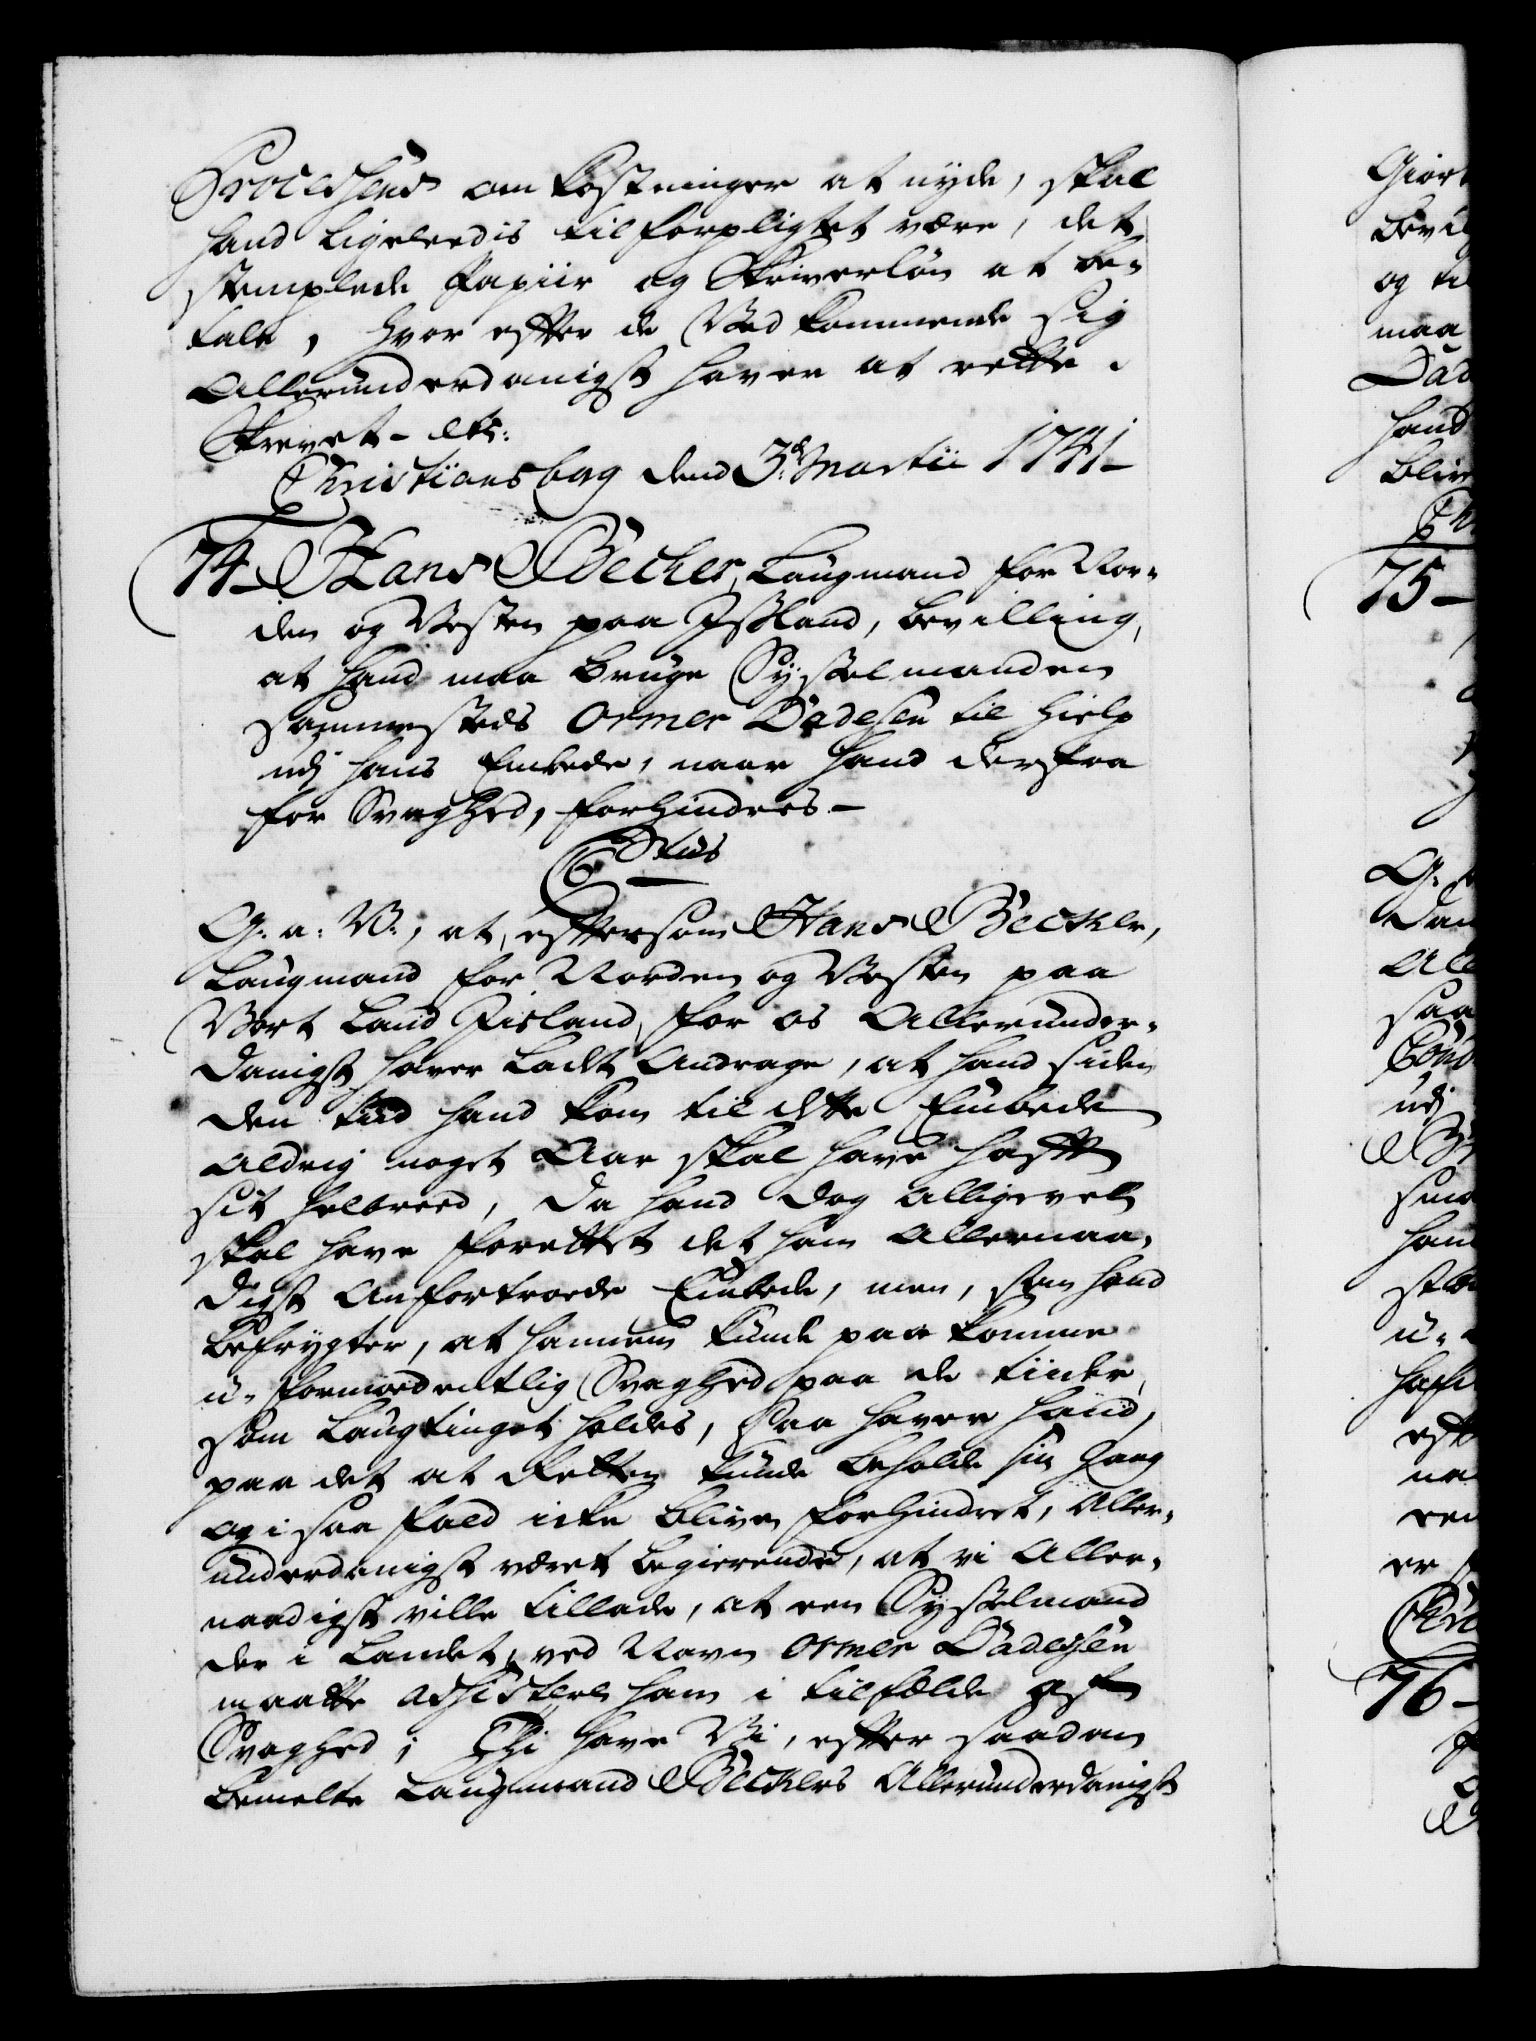 Processens omkostninger at nyde, skal
hand ligeleedis tilforpligtet være, det
stemplede Papiir og Skriverløn at be-
tale, hvor efter de Vedkommende sig
Allerunderdanigst haver at rette.
Skrevet - etc:
Christiansborg dend 3die Martii 1741
74 Hans Becher, Laugmand for Nor-
den og Vesten paa Jisland, bevilling,
at hand maa bruge Sysselmanden
sammesteds Ormer Dadesen til hielp
udj hans Embede, naar hand derfra
for Svaghed, forhindres.
C 6tus
G: a: V:, at, eftersom Hans Becker,
Laugmand for Norden og Vesten paa
Vort Land Jisland, for os Allerunder-
danigst haver ladt andrage, at hand siden
den tiid hand kom til dette Embede
aldrig noget Aar skal have hafft
sit helbreed, da hand dog alligevell
skal have forettet det ham allernaa-
digst anfortroede Embede, men, som hand
befrygter, at hannem kunde paa komme
u-formoedentlig Svaghed paa de tiider,
som Laugtinget holdes, Saa haver hand,
paa det at Retten kunde beholde sin Gang
og i saa fald icke blive forhindret, aller-
underdanigst været begierende, at vi aller-
naadigst ville tillade, at een Sysselmand
der i Landet, ved Navn Ormer Dadesen
maatte assistere ham i tilfælde af
Svaghed; Thi have Vi, efter saadan
bemelte Laugmand Beckers Allerunderdanigst
Giort
bevil
og til
maa
Dad
hand
bliv
Ch
75
G: a
dan
All
saa
Con
udj
ham
u-
haft
eft
er
76